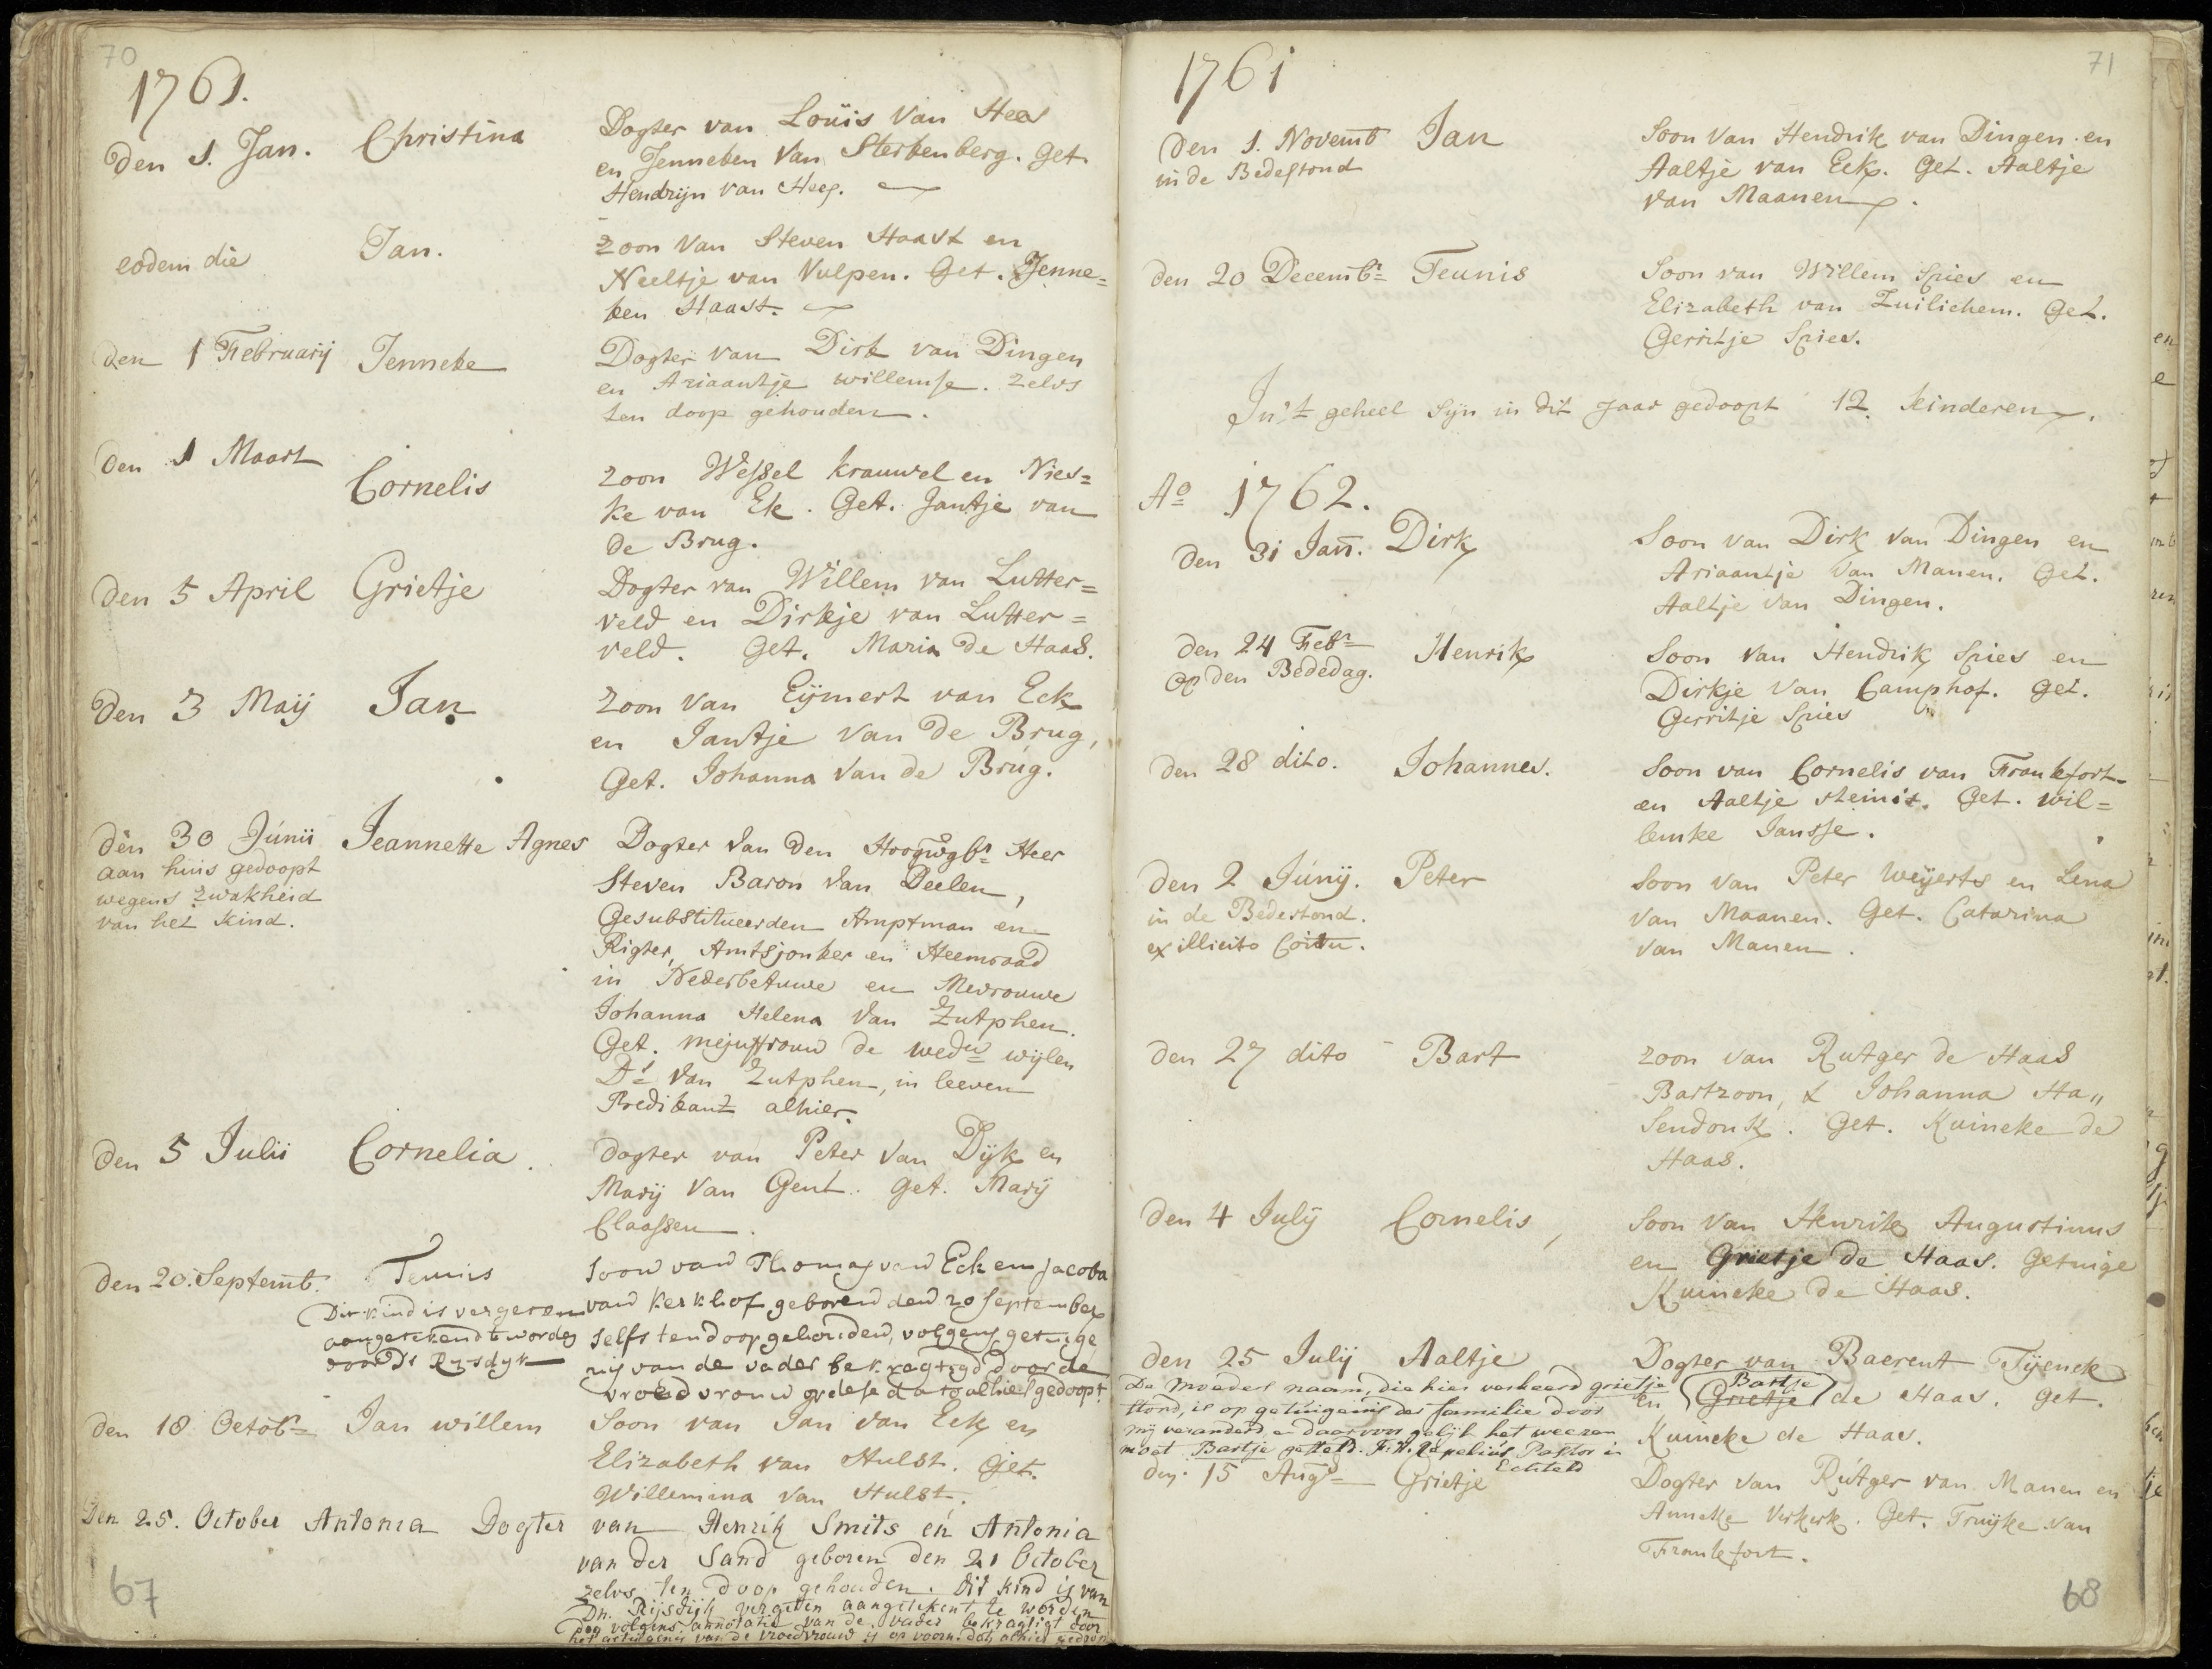 70
1761.
Den 1. Jan. Christina Dogter van Louïs Van Hees
en Jenneken Van Sterkenberg. Get.
Hendrijn van Hees.
eodem die Jan. zoon Van Steven Haast en
Neeltje van Vulpen. Get. Jenne=
ken Haast.
den 1 February Jenneke Dogter van Dirk van Dingen
en Ariaantje willemse. zelvs
ten doop gehouden.
Den 1 Maart Cornelis zoon Wessel krauwel en Nies=
ke van Ek. Get. Jantje van
de Brug.
Den 5 April Grietje Dogter van Willem van Lutter=
veld en Dirkje van Lutter=
veld. Get. Maria De Haas.
Den 3 Maij Jan zoon van Eijmert van Eck
en Jantje Van De Brug,
Get. Johanna Van de Brug.
den 30 Junii Jeannette Agnes Dogter Van Den Hoogwgbr Heer
aan huis gedoopt
wegens zwakheid
van het kind.
Steven Baron Van Deelen,
Gesubstitueerden Amptman en
Rigter, Amtsjonker en Heemraad
in Nederbetuwe en Mevrouwe
Johanna Helena Van Zutphen.
Get. mejuffrouw de wedw wijlen
Ds Van Zutphen, in leeven
Predikant alhier.
Den 5 Julii Cornelia. Dogter van Peter Van Dijk en
Marij Van Gent. Get. Marij
Claassen.
Den 20. Septemb. Teunis Soon van Thomas van Eck en Jacoba
Dit kind is vergeten
aangetekend te worden
door Ds Rijsdijk
van Kerkhof geboren den 20 september
selfs ten doop gehouden, volgens getuige
nis van de vader bekragtigd door de
vroedvrouw op dese dato alhier gedoopt.
Den 18 Octobr Jan willem Soon van Jan Van Eck en
Elizabeth van Hulst. Get.
Willemina Van Hulst.
Den 25. October Antonia Dogter van Henrik Smits en Antonia
van der Sand geboren den 21 October
zelvs ten doop gehouden. Dit kind is van
Dn. Rijsdijk vergeten aangetekent te worden
dog volgens annotatie van de vader bekragtigt door
het getuigenis van de vroedvrouw is op voorn. dato alhier gedoopt
67
71
1761
Den 1. Novemb Jan Soon Van Hendrik van Dingen en
in de Bedestond
Aaltje van Eck. Get. Aaltje
van Maanen.
den 20 Decembr Teunis Soon van Willem Spies en
Elizabeth van Zuilichem. Get.
Gerritje Spies.
In't geheel sijn in dit Jaar gedoopt 12 kinderen.
Ao 1762.
Den 31 Jan. Dirk Soon van Dirk van Dingen en
Ariaantje Van Manen. Get.
Aaltje van Dingen.
Den 24 Febr Henrik Soon Van Hendrik Spies en
Op den Bededag.
Dirkje Van Camphof. Get.
Gerritje Spies
Den 28 dito. Johannes. Soon van Cornelis van Frankfort
en Aaltje Get. wil=
lemke Jansse.
Den 2 Junij. Peter Soon Van Peter Weijerts en Lena
in de Bedestond.
ex illicito Coitu.
Van Maanen. Get. Catarina
Van Manen.
Den 27 dito - Bart zoon van Rutger de Haas
Bartzoon, & Johanna Ha"
sendonk. Get. Kuineke de
Haas.
Den 4 Julij Cornelis, Soon Van Henrik Augustinus
en Grietje de Haas. Getuige
Kuineke de Haas.
Den 25 Julij Aaltje Dogter van Baerent Tijenck
De Moeders naam, die hier verkeerd grietje
stond, is op getuigenis der familie door
mij veranderd, en daar voor gelijk het weezen
moet Bartje gesteld. F. H. Kapelius Pastor in
Echteld
Bartje
en (Grietje) de Haas. Get.
Kuineke de Haas.
den 15 Augs Grietje Dogter Van Rutger van Manen en
Anneke Verkerk. Get. Truijke van
Frankfort.
68